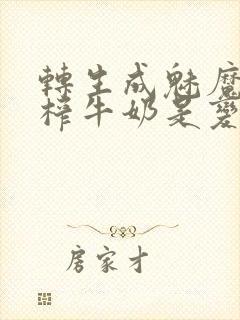 轉生成魅魔
榨牛奶是變
房家才